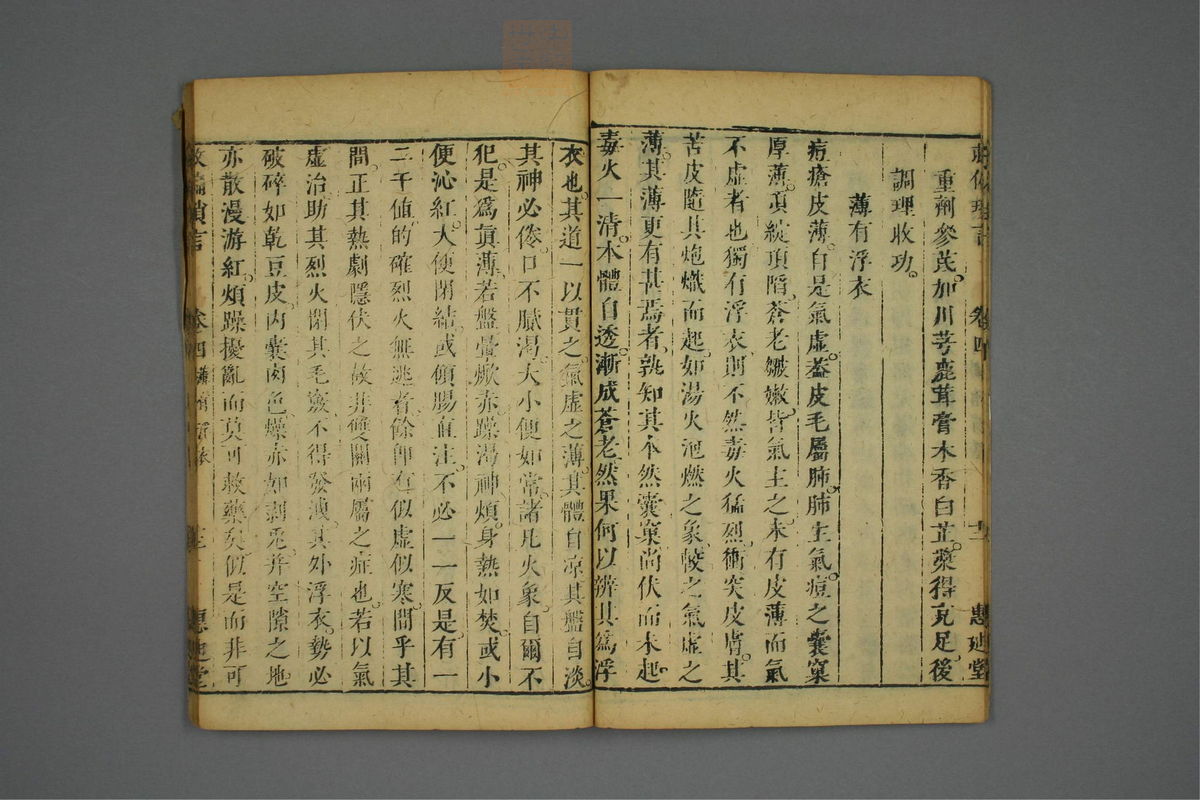 重劑參芪。加川芎鹿茸膏木香白芷。藥得充足。後
調理收功。
薄有浮衣
痘瘡皮薄。自是氣虛。蓋皮毛屬肺。肺主氣。痘之囊窠
厚薄。頂綻頂陷。蒼老皺嫩。皆氣主之。未有皮薄而氣
不虛者也。獨有浮衣。則不然。毒火猛烈。衝突皮膚。其
苦皮隨其炮熾而起。如湯火泡燃之象。較之氣虛之
薄。其薄更有甚焉者。孰知其本然囊窠尚伏而未起。
毒火一清。本體自透。漸成蒼老。然果何以辨其爲浮
衣也。其道一以貫之。氣虛之薄。其體自凉。其盤自淡。
其神必倦。口不膩渴。大小便如常。諸凡火象。自爾不
犯。是爲眞薄。若盤暈焮赤。躁渴神煩。身熱如焚。或小
便沁紅。大便閉結。或傾腸直注。不必一一反是。有一
二干値。的確烈火無逃者。餘卽有似虛似寒。間乎其
間。正其熱劇隱伏之故。非雙關兩屬之症也。若以氣
虛治。助其烈火。閉其毛竅。不得發洩。其外浮衣。勢必
破碎如乾豆皮。內囊肉色燥赤如剥兎。并空隙之地。
亦散漫游紅。煩躁擾亂而莫可救藥矣。似是而非。可
卷四
惠迪堂